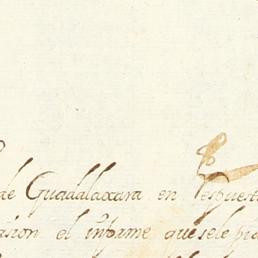 de Guadalaxara en respuest
asion el informe que se le pi